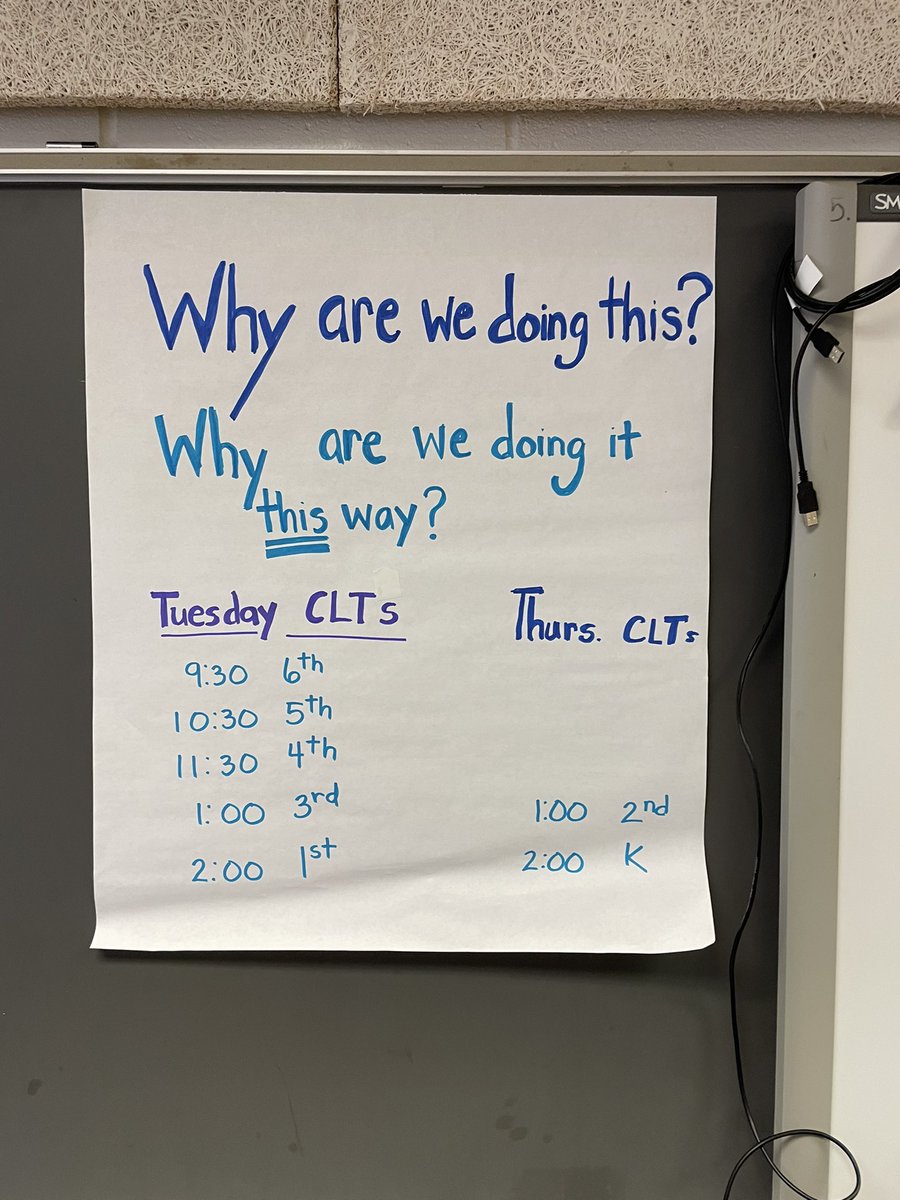 Why are we doing this?
Why are we doing it
this way?
Tuesday CLTs
9:30 6th
10:30 5th
11:30 4th
1:00 3rd
2:00 1st
Thurs. CLTs
1:00 2nd
2:00 K
5.
SM